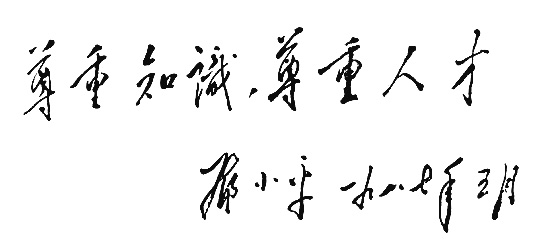 尊重知識,尊重人才
邓小平 一九八七年五月